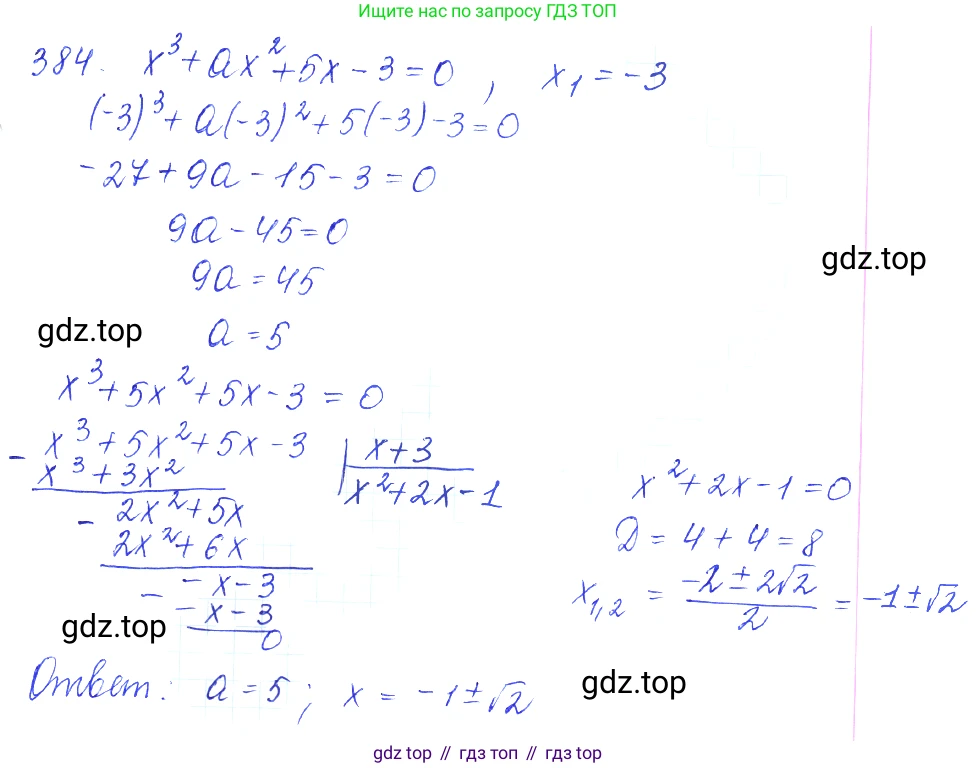 Ищите нас по запросу ГДЗ ТОП
384. x³ + ax² + 5x - 3 = 0 , x₁ = -3
(-3)³ + a(-3)² + 5(-3) - 3 = 0
-27 + 9a - 15 - 3 = 0
9a - 45 = 0
gdz.top
9a = 45
gdz.top
a = 5
x³ + 5x² + 5x - 3 = 0
- x³ + 5x² + 5x - 3 | x + 3
x³ + 3x² | x² + 2x - 1
- 2x² + 5x
2x² + 6x
- - x - 3
- x - 3
0
x² + 2x - 1 = 0
D = 4 + 4 = 8
x₁,₂ = (-2 ± 2√2)/2 = -1 ± √2
gdz.top
Ответ: a = 5 ; x = -1 ± √2
gdz.top
gdz top // гдз топ // gdz top